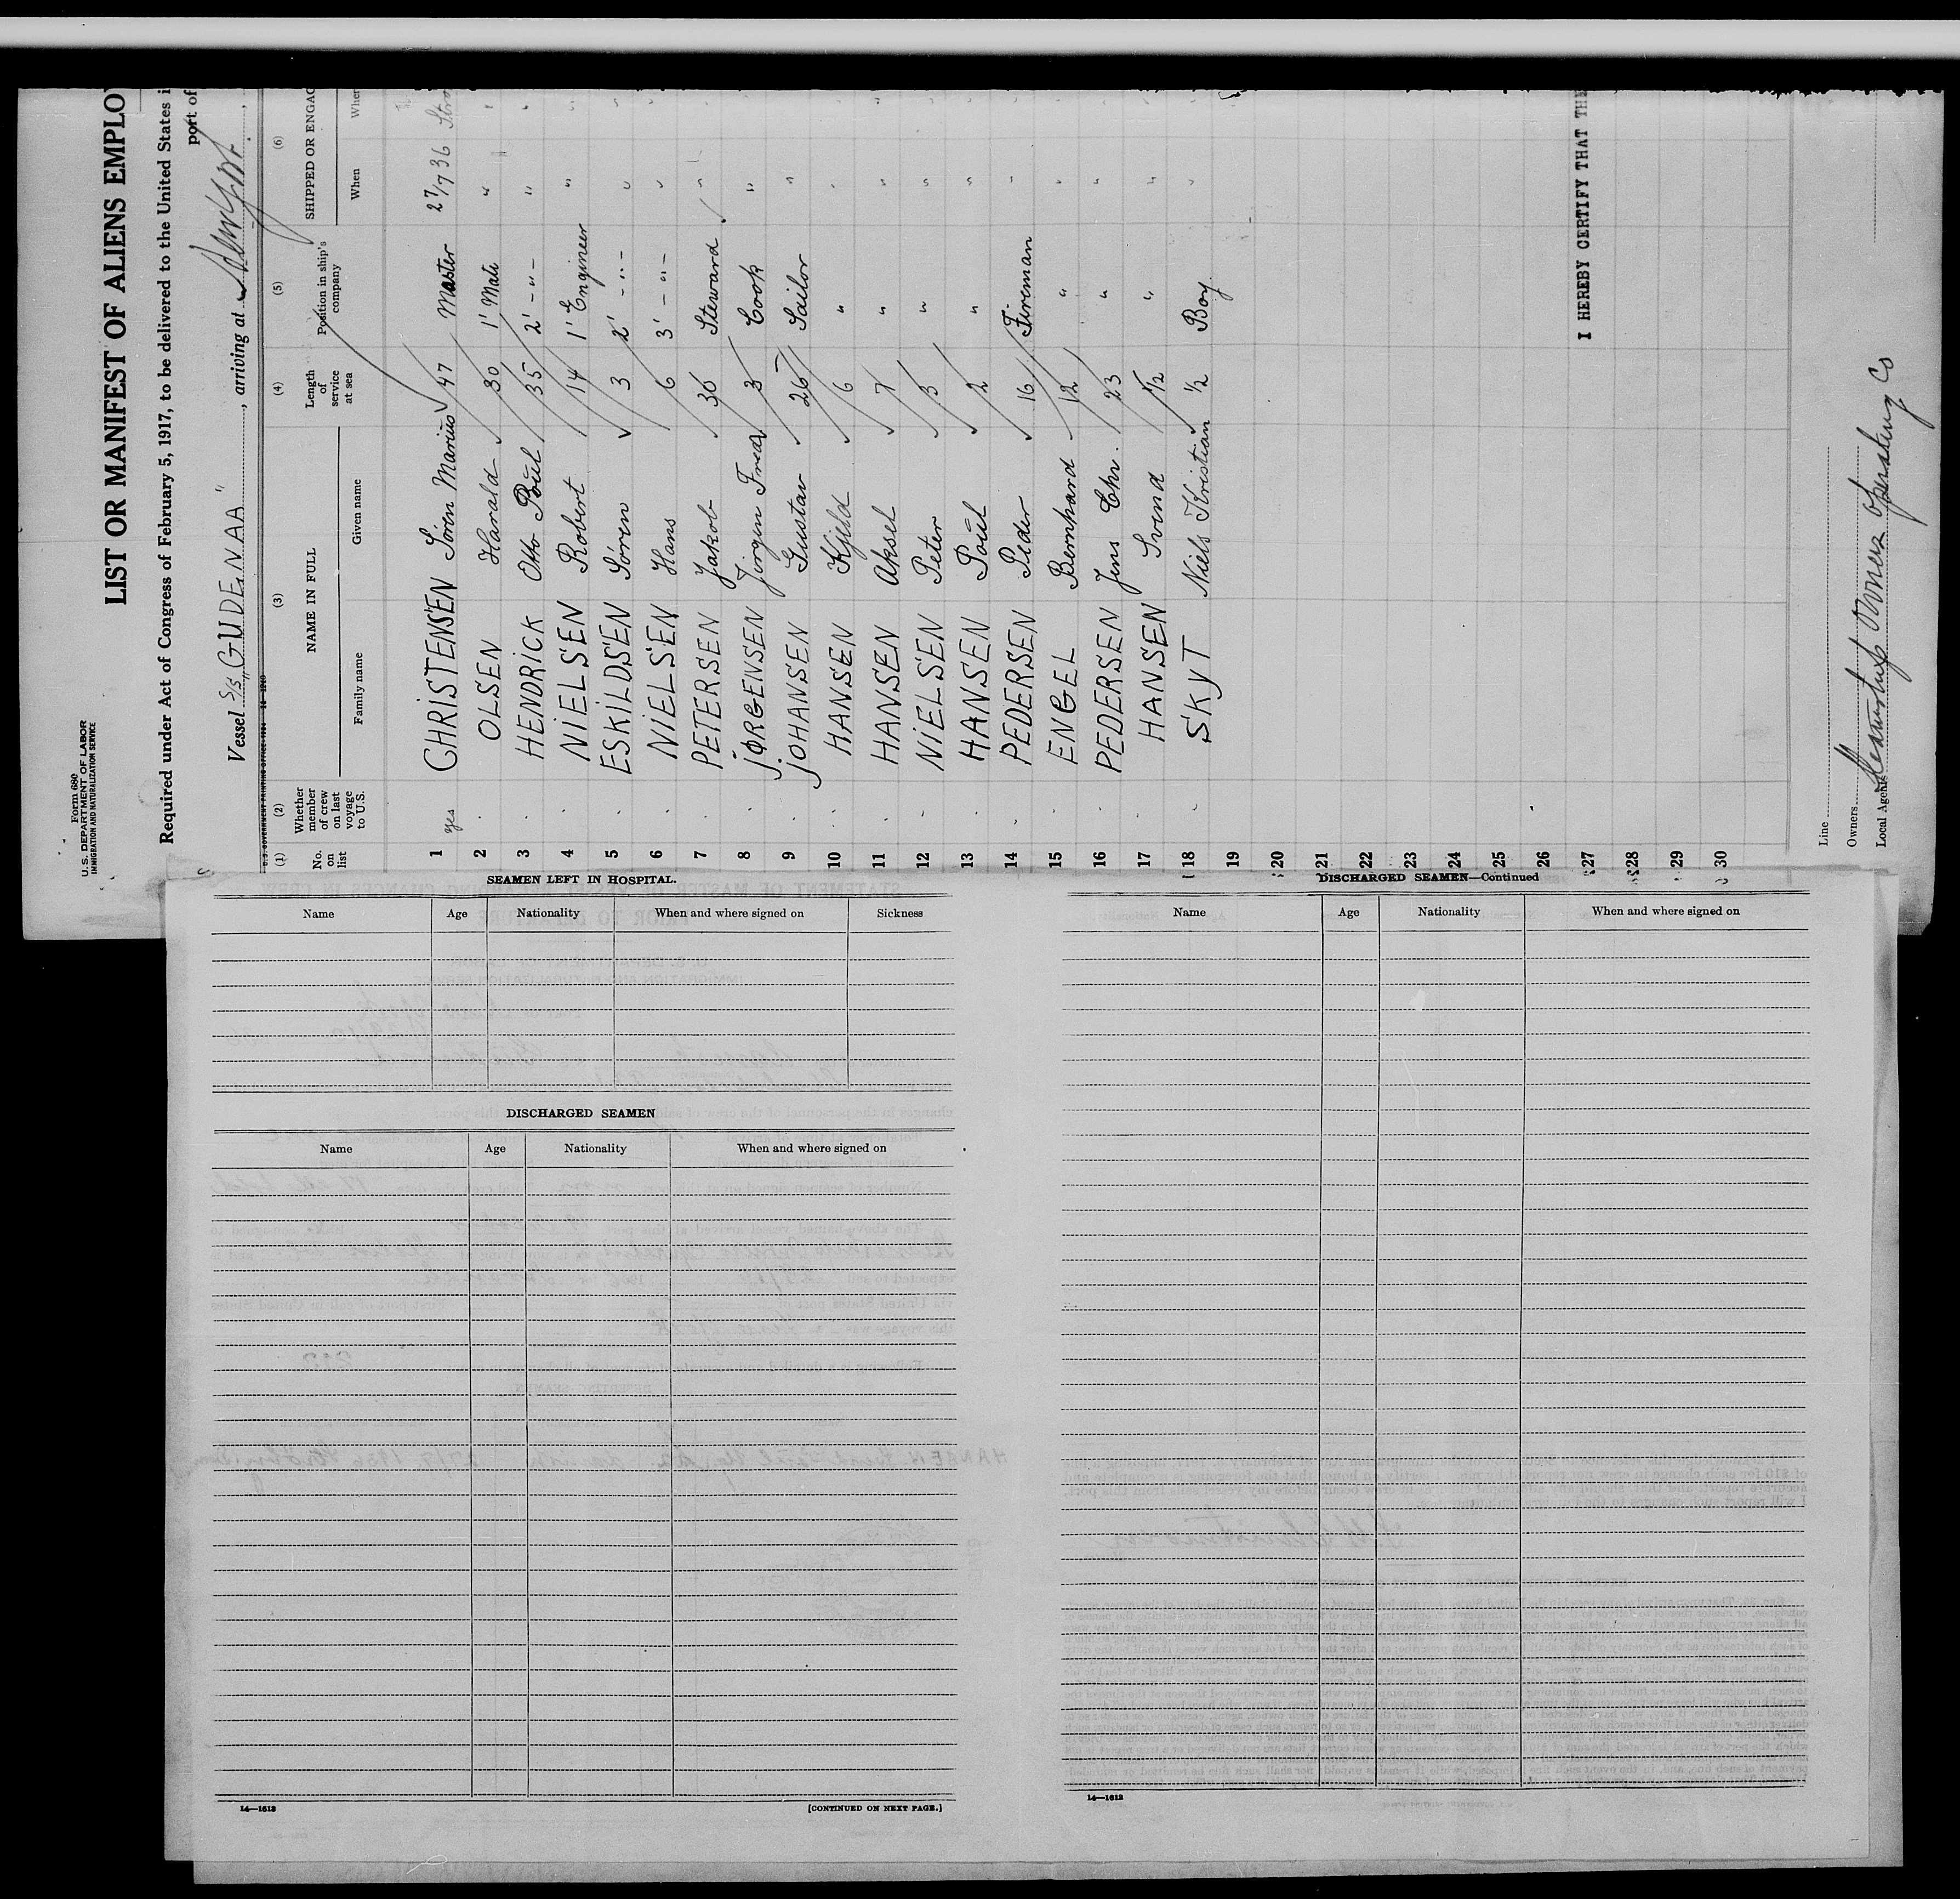 Form 680
U.S. DEPARTMENT OF LABOR
IMMIGRATION AND NATURALIZATION SERVICE
LIST OR MANIFEST OF ALIENS EMPLO
Required under Act of Congress of February 5, 1917, to be delivered to the United States i
port of
Vessel S/S „GUDENAA", arriving at
(1) (2) (3) (4) (5) (6)
No. on list Whether member of crew on last voyage to U.S. NAME IN FULL Length of service at sea Position in ship's company SHIPPED OR ENGAG
Family name Given name When Wher
1 yes CHRISTENSEN Sören Marius 47 Master 27/7 36
2 OLSEN Harald 30 1' Mate "
3 HENDRICK Otto Poul 35 2' -"- "
4 NIELSEN Robert 14 1' Engineer "
5 ESKILDSEN Søren 3 2' -"- "
6 NIELSEN Hans 6 3' -"- "
7 PETERSEN Jakob 36 Steward "
8 JØRGENSEN Jörgen Fred 3 Cook "
9 JOHANSEN Gustav 26 Sailor "
10 HANSEN Kjeld 6 " "
11 HANSEN Aksel 7 " "
12 NIELSEN Peter 3 " "
13 HANSEN Poul 2 " "
14 PEDERSEN Peder 16 Fireman "
15 ENGEL Bernhard 12 " "
16 PEDERSEN Jens Chr. 23 " "
17 HANSEN Svend 1/2 " "
18 SKYT Niels Kristian 1/2 Boy "
19
20
21
22
23
24
25
26
27
28
29
30
I HEREBY CERTIFY THAT THE
Line
Owners
Local Agents Steamship Owners Operating Co
SEAMEN LEFT IN HOSPITAL.
Name Age Nationality When and where signed on Sickness
DISCHARGED SEAMEN
Name Age Nationality When and where signed on
14—1613
[CONTINUED ON NEXT PAGE.]
DISCHARGED SEAMEN—Continued
Name Age Nationality When and where signed on
14—1613